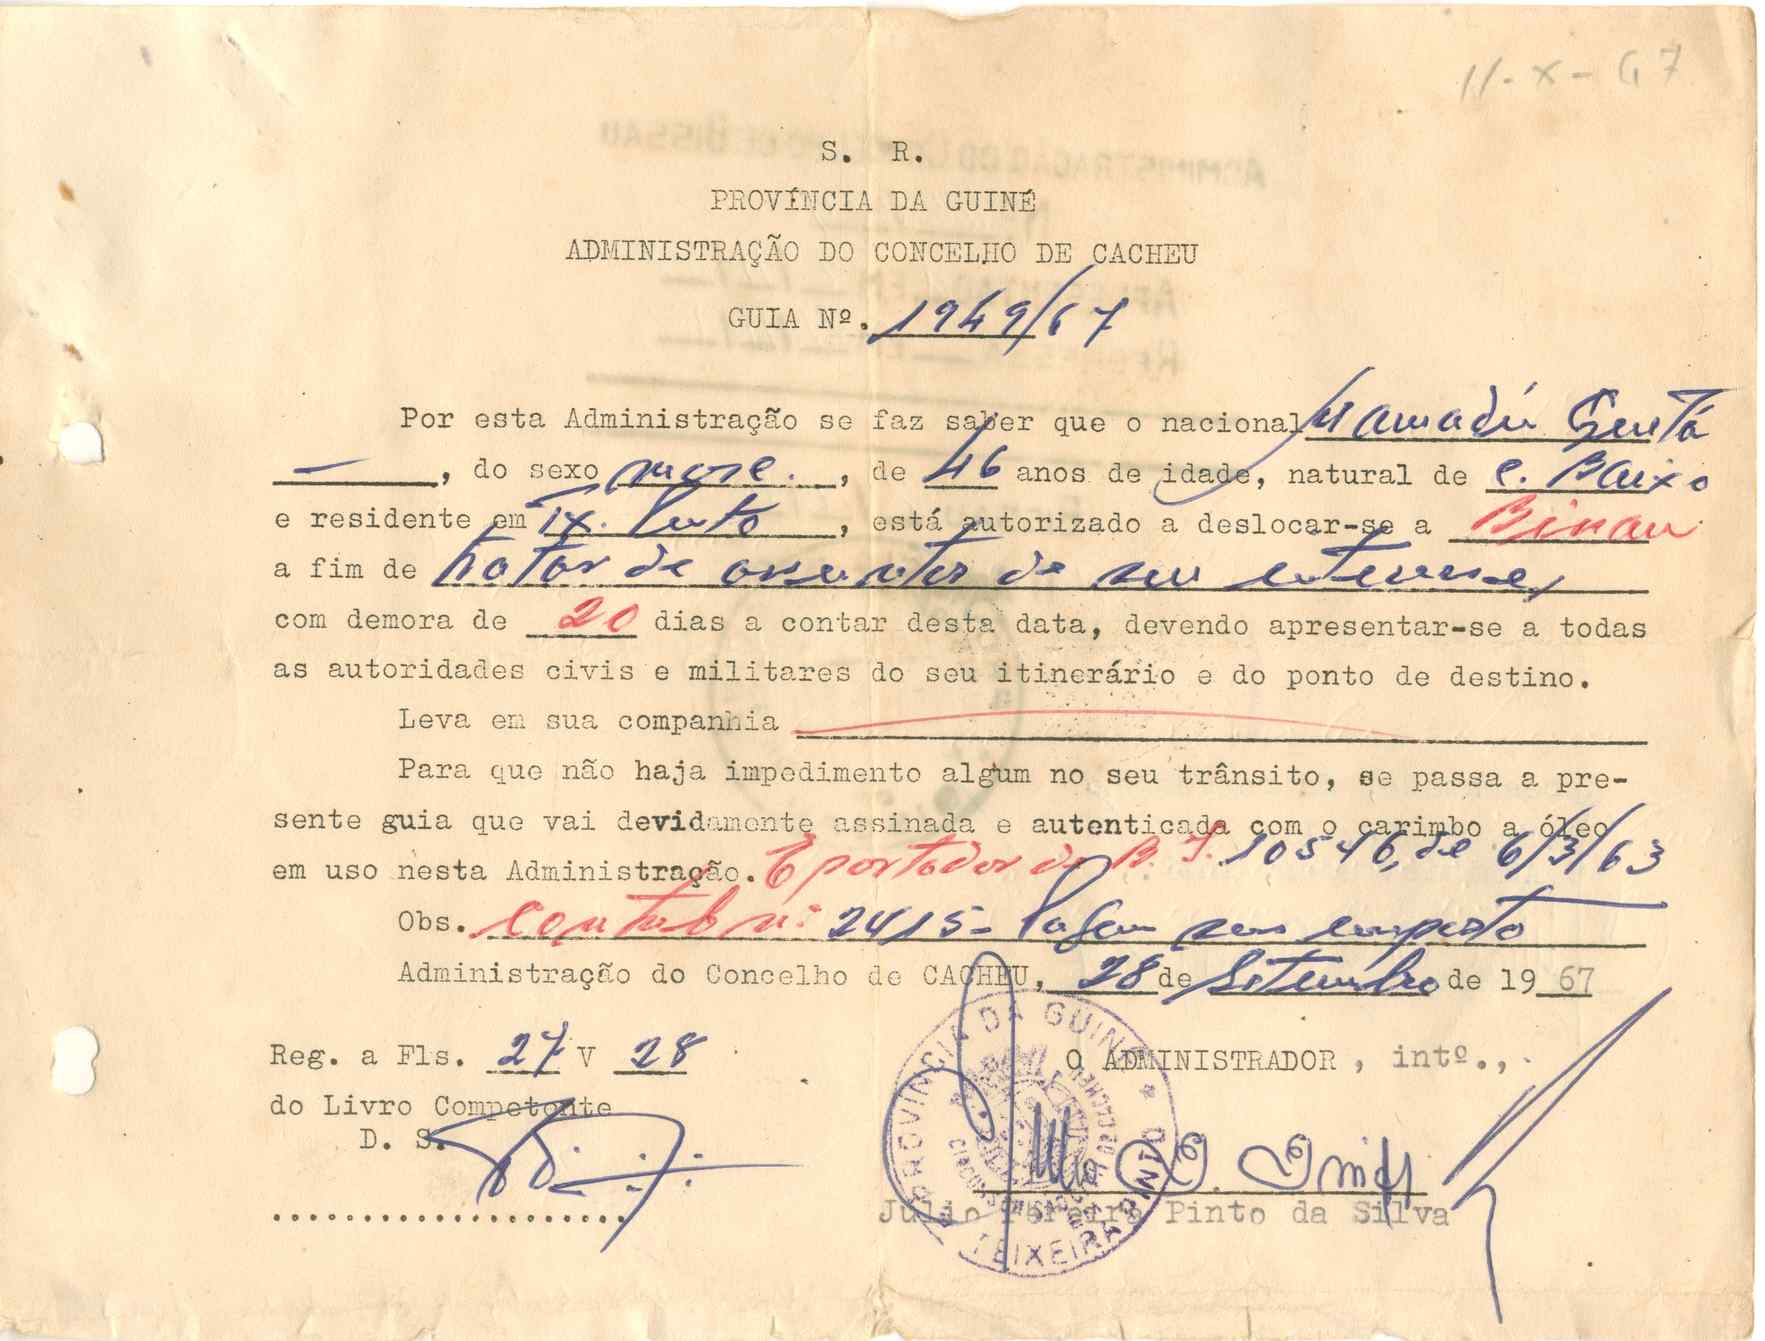 11-X-67
S. R.
PROVÍNCIA DA GUINÉ
ADMINISTRAÇÃO DO CONCELHO DE CACHEU
GUIA Nº. 1949/67
Por esta Administração se faz saber que o nacional Mamadú
, do sexo masc. , de 46 anos de idade, natural de C. Baixo
e residente em Tx. Pinto , está autorizado a deslocar-se a Bissau
a fim de tratar de assuntos de seu interesse,
com demora de 20 dias a contar desta data, devendo apresentar-se a todas
as autoridades civis e militares do seu itinerário e do ponto de destino.
Leva em sua companhia
Para que não haja impedimento algum no seu trânsito, se passa a pre-
sente guia que vai devidamente assinada e autenticada com o carimbo a óleo
em uso nesta Administração. É portador do B. I. 10546, de 6/3/63
Obs. Contrib nº 2415- Pagou seu imposto
Administração do Concelho de CACHEU, 28 de Setembro de 1967
Reg. a Fls. 27 V 28
O ADMINISTRADOR , intº.,
do Livro Competente
D. S.
Júlio Pereira Pinto da Silva
PROVÍNCIA DA GUINÉ
TEIXEIRA PINTO